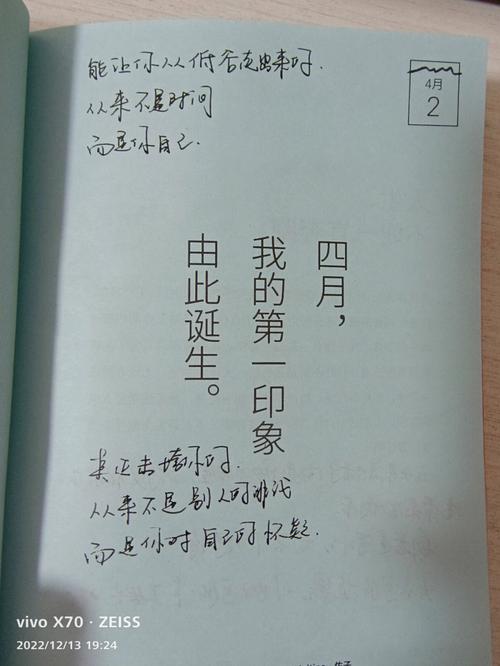 能让你从低谷走出来的.
从来不是时间
而是你自己.
4月
2
四月，
我的第一印象
由此诞生。
真正击垮你的.
从来不是别人的
而是你对自己的怀疑.
vivo X70 · ZEISS
2022/12/13 19:24